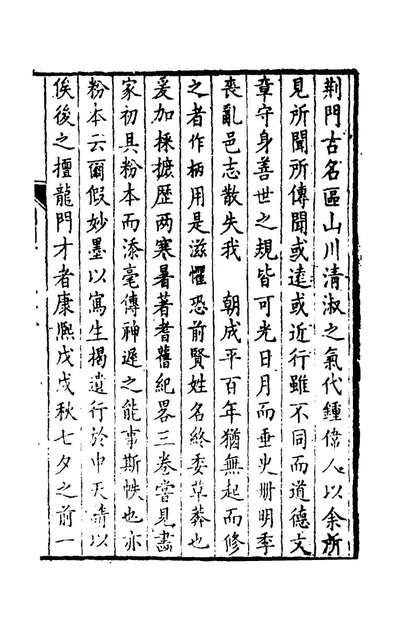 荆門古名區山川清淑之氣代鍾偉人以余所
見所聞所傳聞或遠或近行雖不同而道德文
章守身善世之規皆可光日月而垂史册明季
喪亂邑志散失我　朝成平百年猶無起而修
之者作柄用是滋懼恐前賢姓名終委草莽也
爰加採摭歷两寒暑著耆舊紀畧三卷嘗見畵
家初具粉本而添毫傳神遲之能事斯帙也亦
粉本云爾假妙墨以寫生揭遺行於中天請以
俟後之擅龍門才者康熈戊戌秋七夕之前一